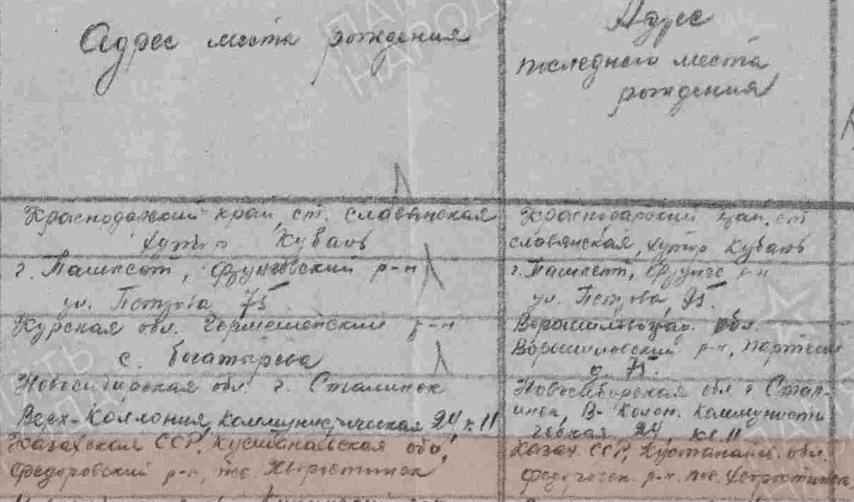 Адрес места рождения
Адрес
последнего места
рождения
Краснодарский край, ст. Славянская
хутор Кубань
г. Ташкент, Фрунзевский р-н
ул. Петрова 75
Курская обл. р-н
с. Богатырева
Новосибирская обл. г. Сталинск
Верх-Коллония, Коммунистическая 24 к 11
Казахская ССР, Кустанайская обл,
Федоровский р-н, пос. Хворостинка
Краснодарский край, ст
Славянская, хутор Кубань
г. Ташкент, Фрунзе р-н
ул. Петрова,
Ворошиловград. обл.
Ворошиловский р-н,
д. 75.
Новосибирская обл г Стал-
инск, В- Колон. Коммунисти-
ческая 24, кв. 11
Казах ССР, Кустанайск. обл.
Федоровск. р-н пос. Хворостинка